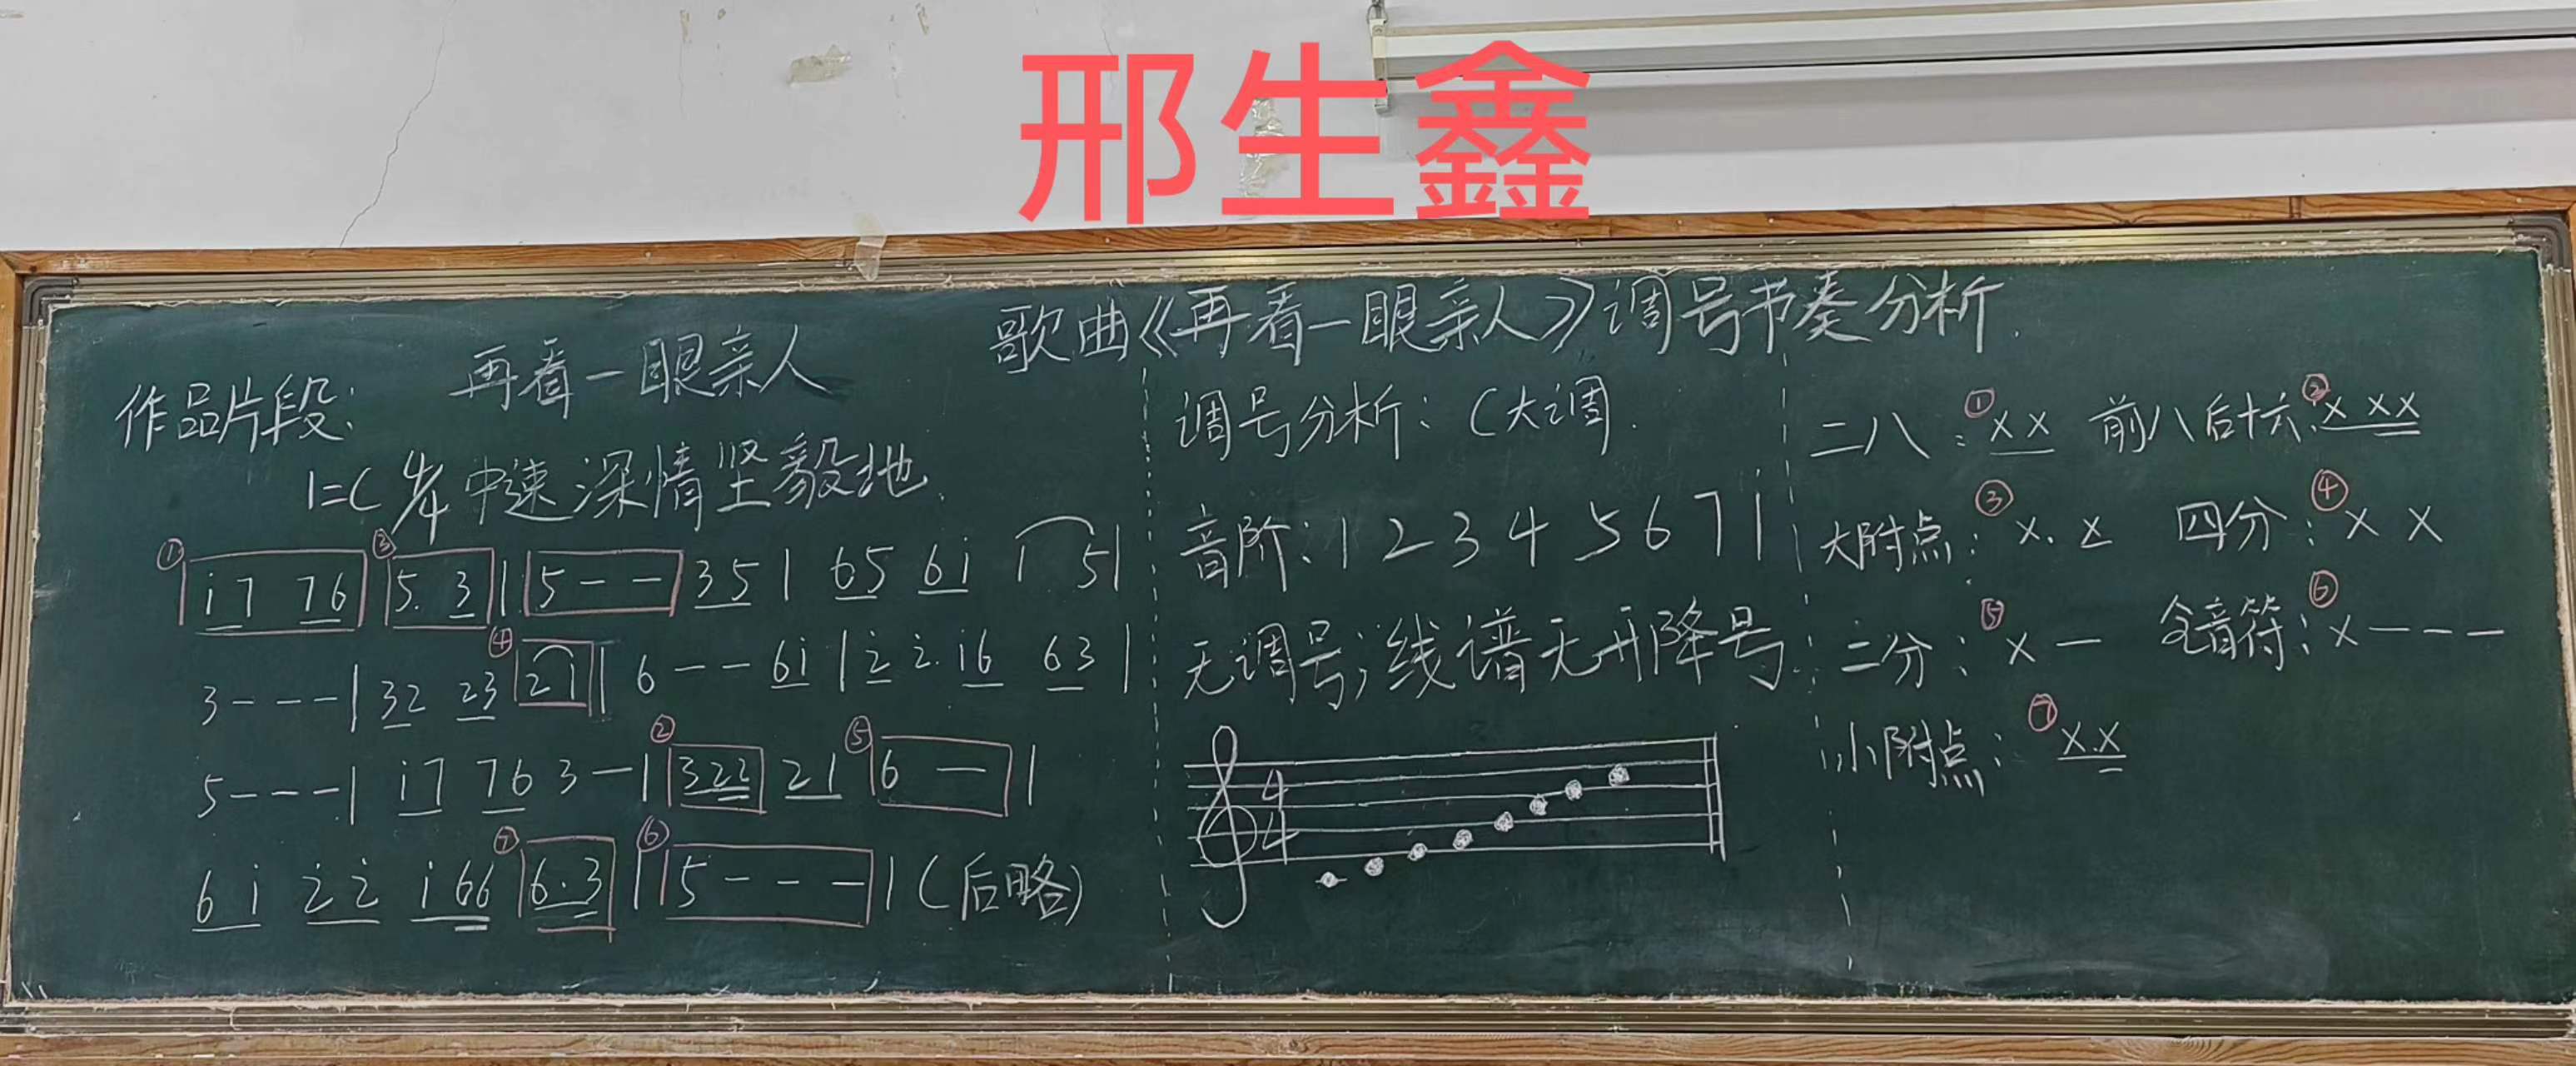 邢生鑫
歌曲《再看一眼亲人》调号节奏分析.
作品片段: 再看一眼亲人
1=C 4/4 中速 深情坚毅地.
① i7 76 ③ 5. 3 | 5 - - 35 | 65 6i i 5 |
3 - - - | 32 23 ④ 2 1 | 6 - - 6i | 2 2. i6 63 |
5 - - - | i7 76 3 - | ② 322 21 ⑤ 6 - |
6i 22 i66 ⑦ 6.3 | ⑥ 5 - - - | (后略)
调号分析: C大调.
音阶: 1 2 3 4 5 6 7 i
无调号; 线谱无升降号
4
4
二八: ① X X 前八后十六: ② X XX
大附点: ③ X. X 四分: ④ X X
二分: ⑤ X - 全音符: ⑥ X - - -
小附点: ⑦ X.X